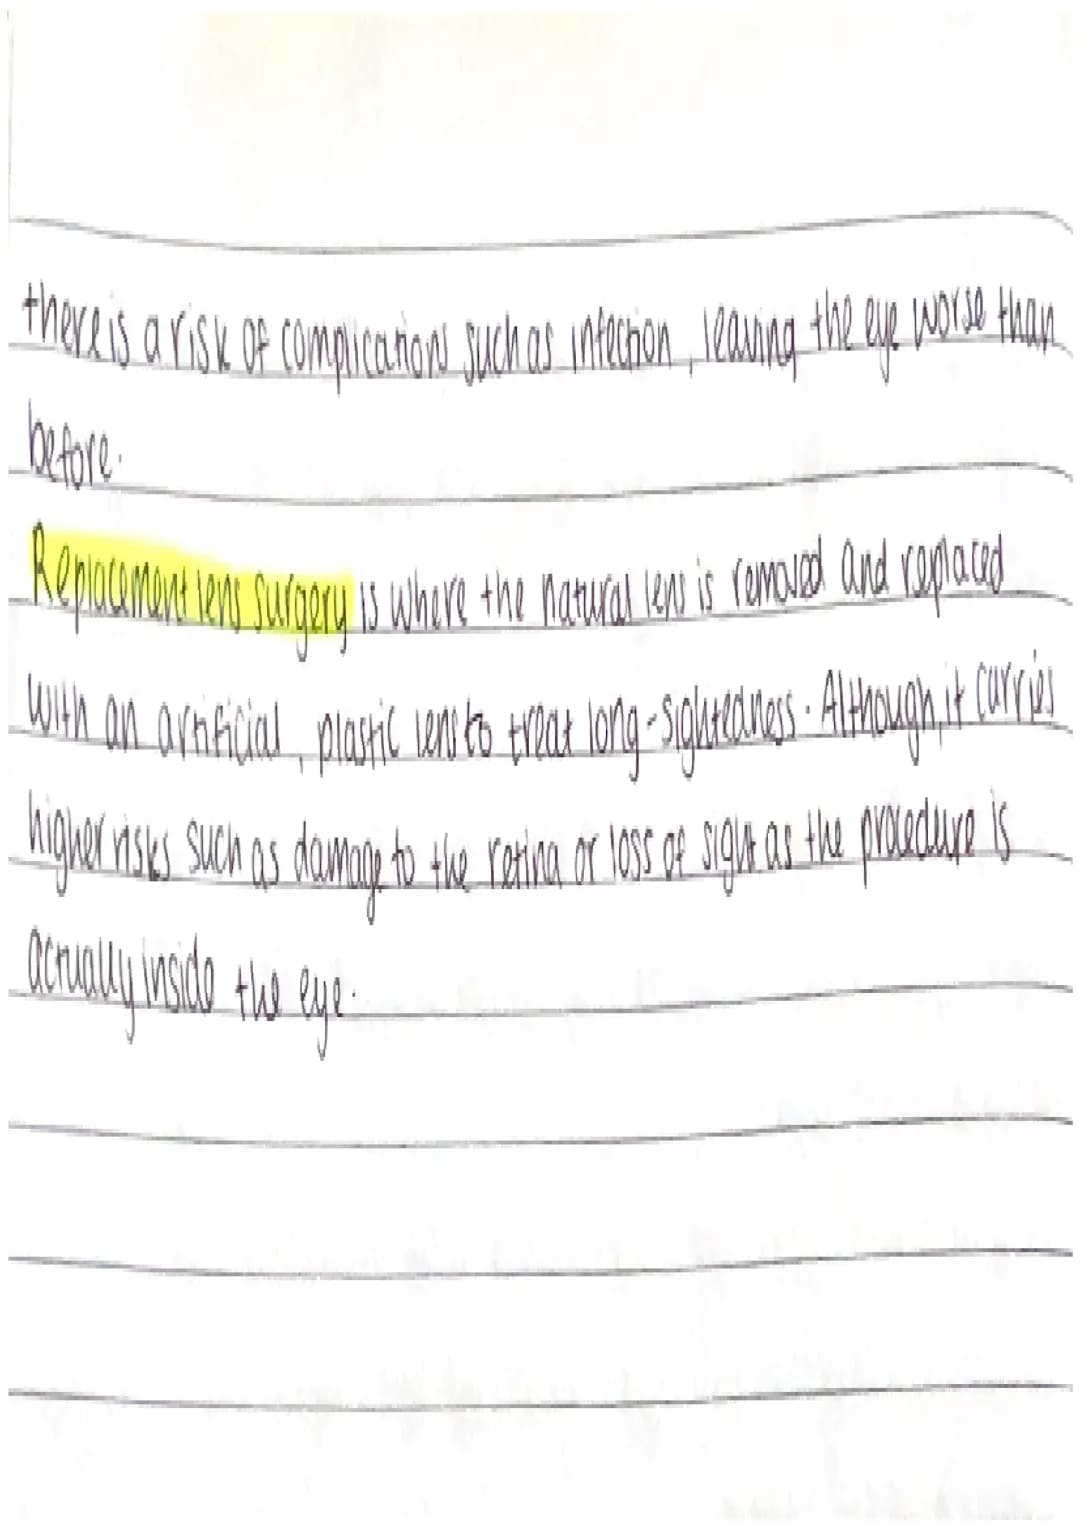 there is a risk of complications such as infection, leaving the eye worse than
before.
Replacement lens surgery is where the natural lens is removed and replaced
with an artificial, plastic lens to treat long-sightedness. Although, it carries
higher risks such as damage to the retina or loss of sight as the procedure is
actually inside the eye.